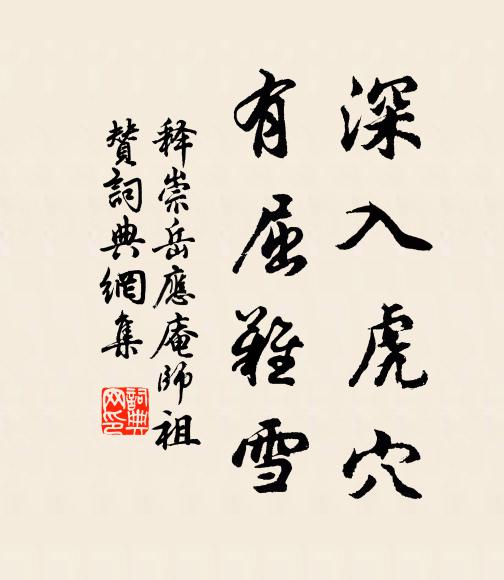 深入虎穴
有屈難雪
释崇岳應庵師祖
贊詞典網集
詞典
网印